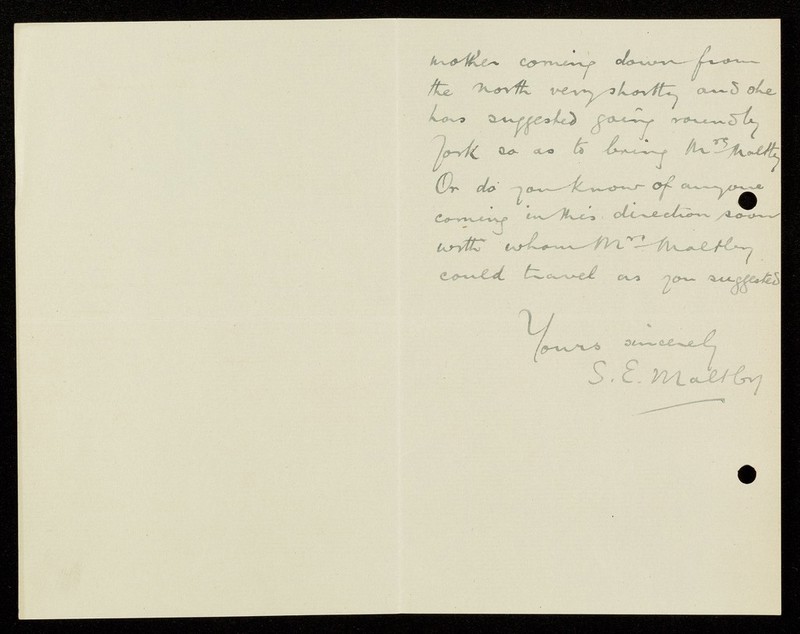 mother coming down from
the north very shortly and she
has suggested going round by
York so as to bring Mrs Maltby
Or do you know of anyone
coming in this direction soon
with whom Mrs Maltby
could travel as you suggested
Yours sincerely
S. E. Maltby